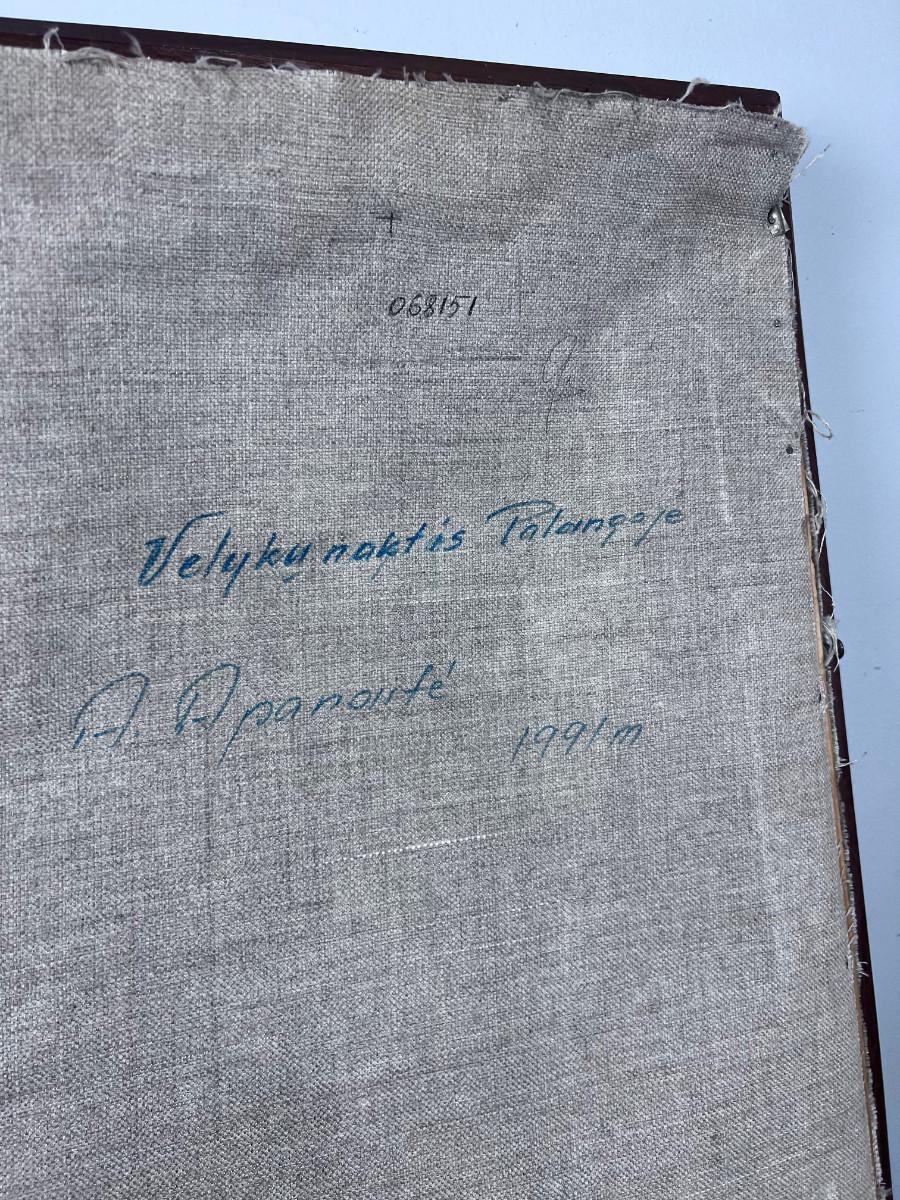 068151
Velykų naktis Palangoje
A. Apanoutė
1991 m